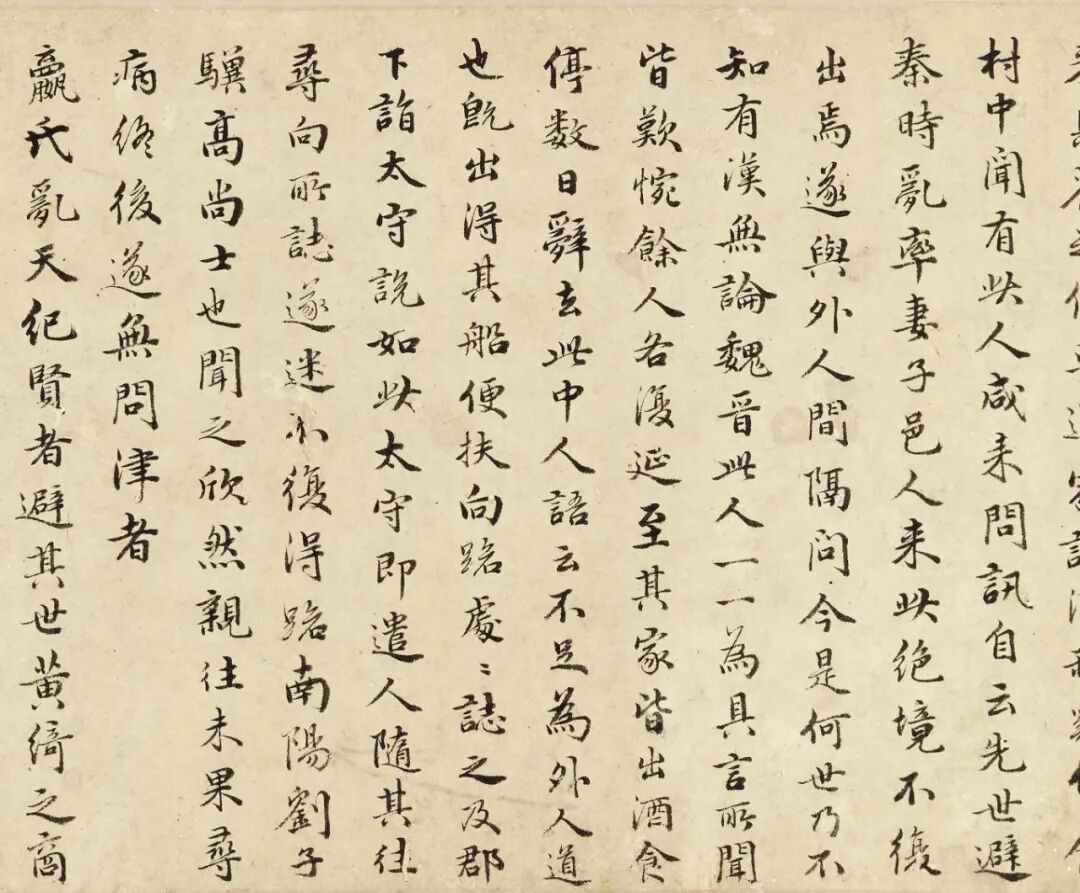 村中聞有此人咸来問訊自云先世避
秦時亂率妻子邑人来此絶境不復
出焉遂與外人間隔问今是何世乃不
知有漢無論魏晉此人一一為具言所聞
皆歎惋餘人各復延至其家皆出酒食
停数日辭去此中人語云不足為外人道
也既出得其船便扶向路處〻誌之及郡
下詣太守說如此太守即遣人隨其往
尋向所誌遂迷不復得路南陽劉子
驥高尚士也聞之欣然親往未果尋
病終後遂無問津者
嬴氏亂天紀賢者避其世黄綺之商